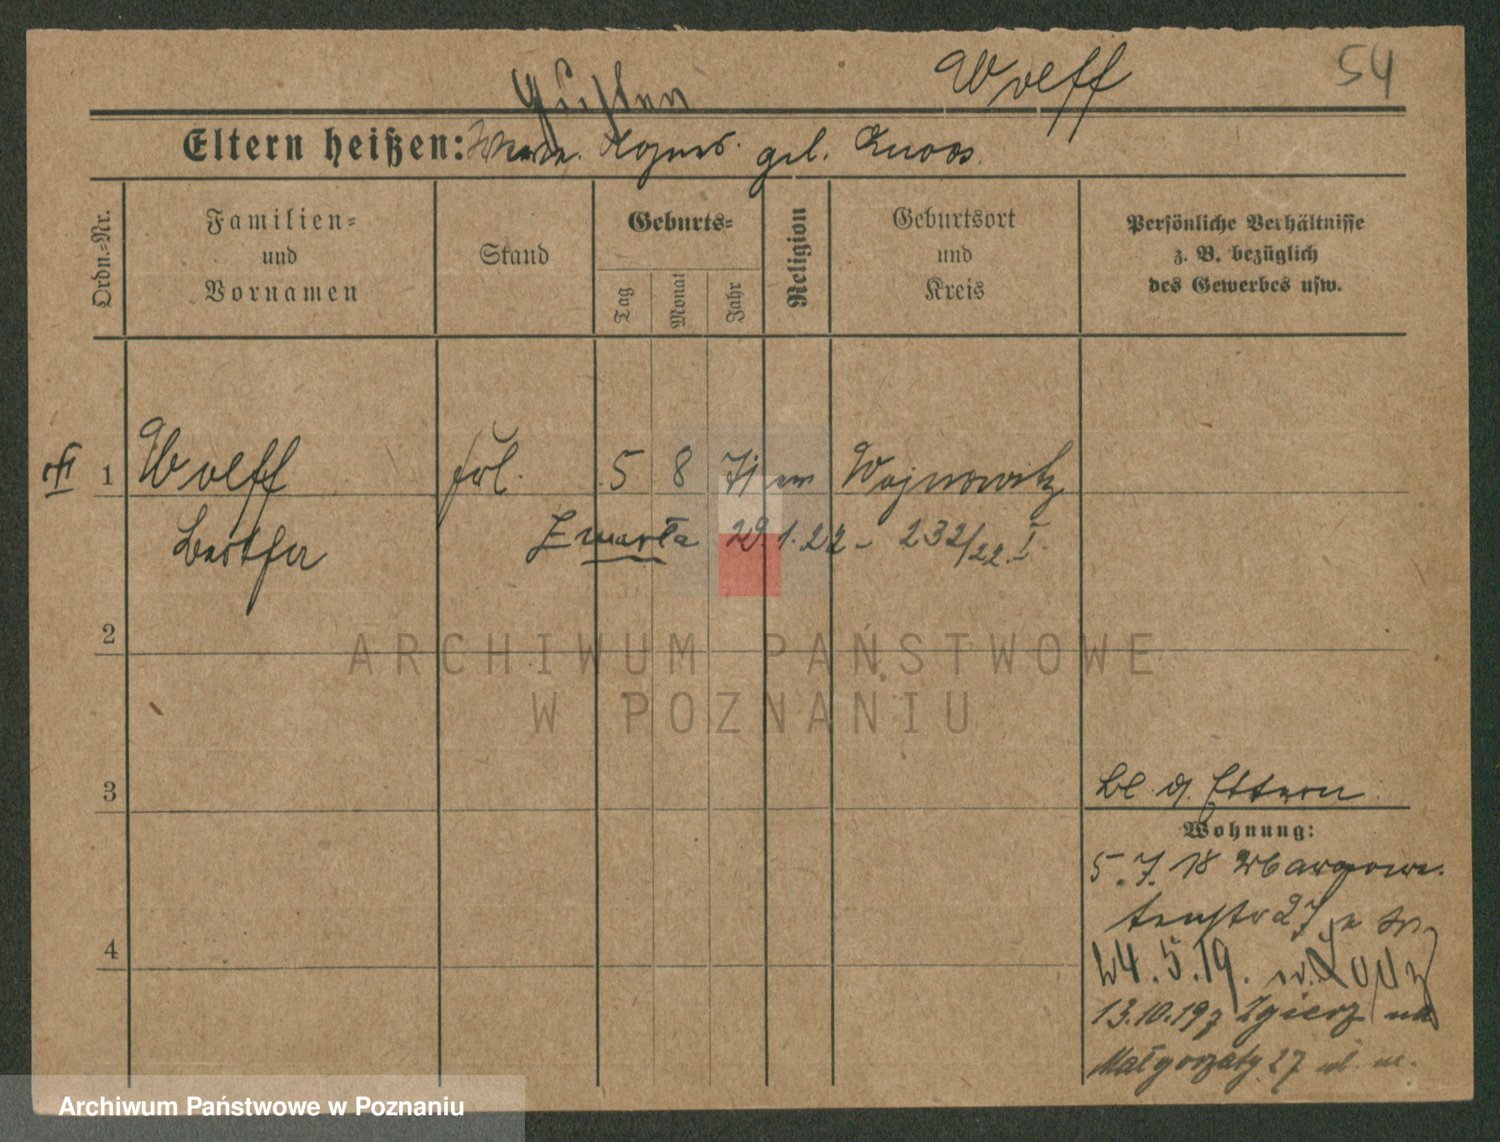 Wolff
54
Gustav
Eltern heißen: Agnes geb.
Ordn.-Nr.
Familien-
und
Vornamen
Stand
Geburts-
Tag
Monat
Jahr
Religion
Geburtsort
und
Kreis
Persönliche Verhältnisse
z. B. bezüglich
des Gewerbes usw.
1 Wolff frl. 5 8 71 Wojnowitz
Zmarła 29.1.22 - 232/22. I.
2
ARCHIWUM PAŃSTWOWE
W POZNANIU
3
bl. d. Eltern
Wohnung:
5.7.18
27
4
24.5.19. Lodz
13.10.19 z Zgierz na
Małgorzaty 27 m.
Archiwum Państwowe w Poznaniu